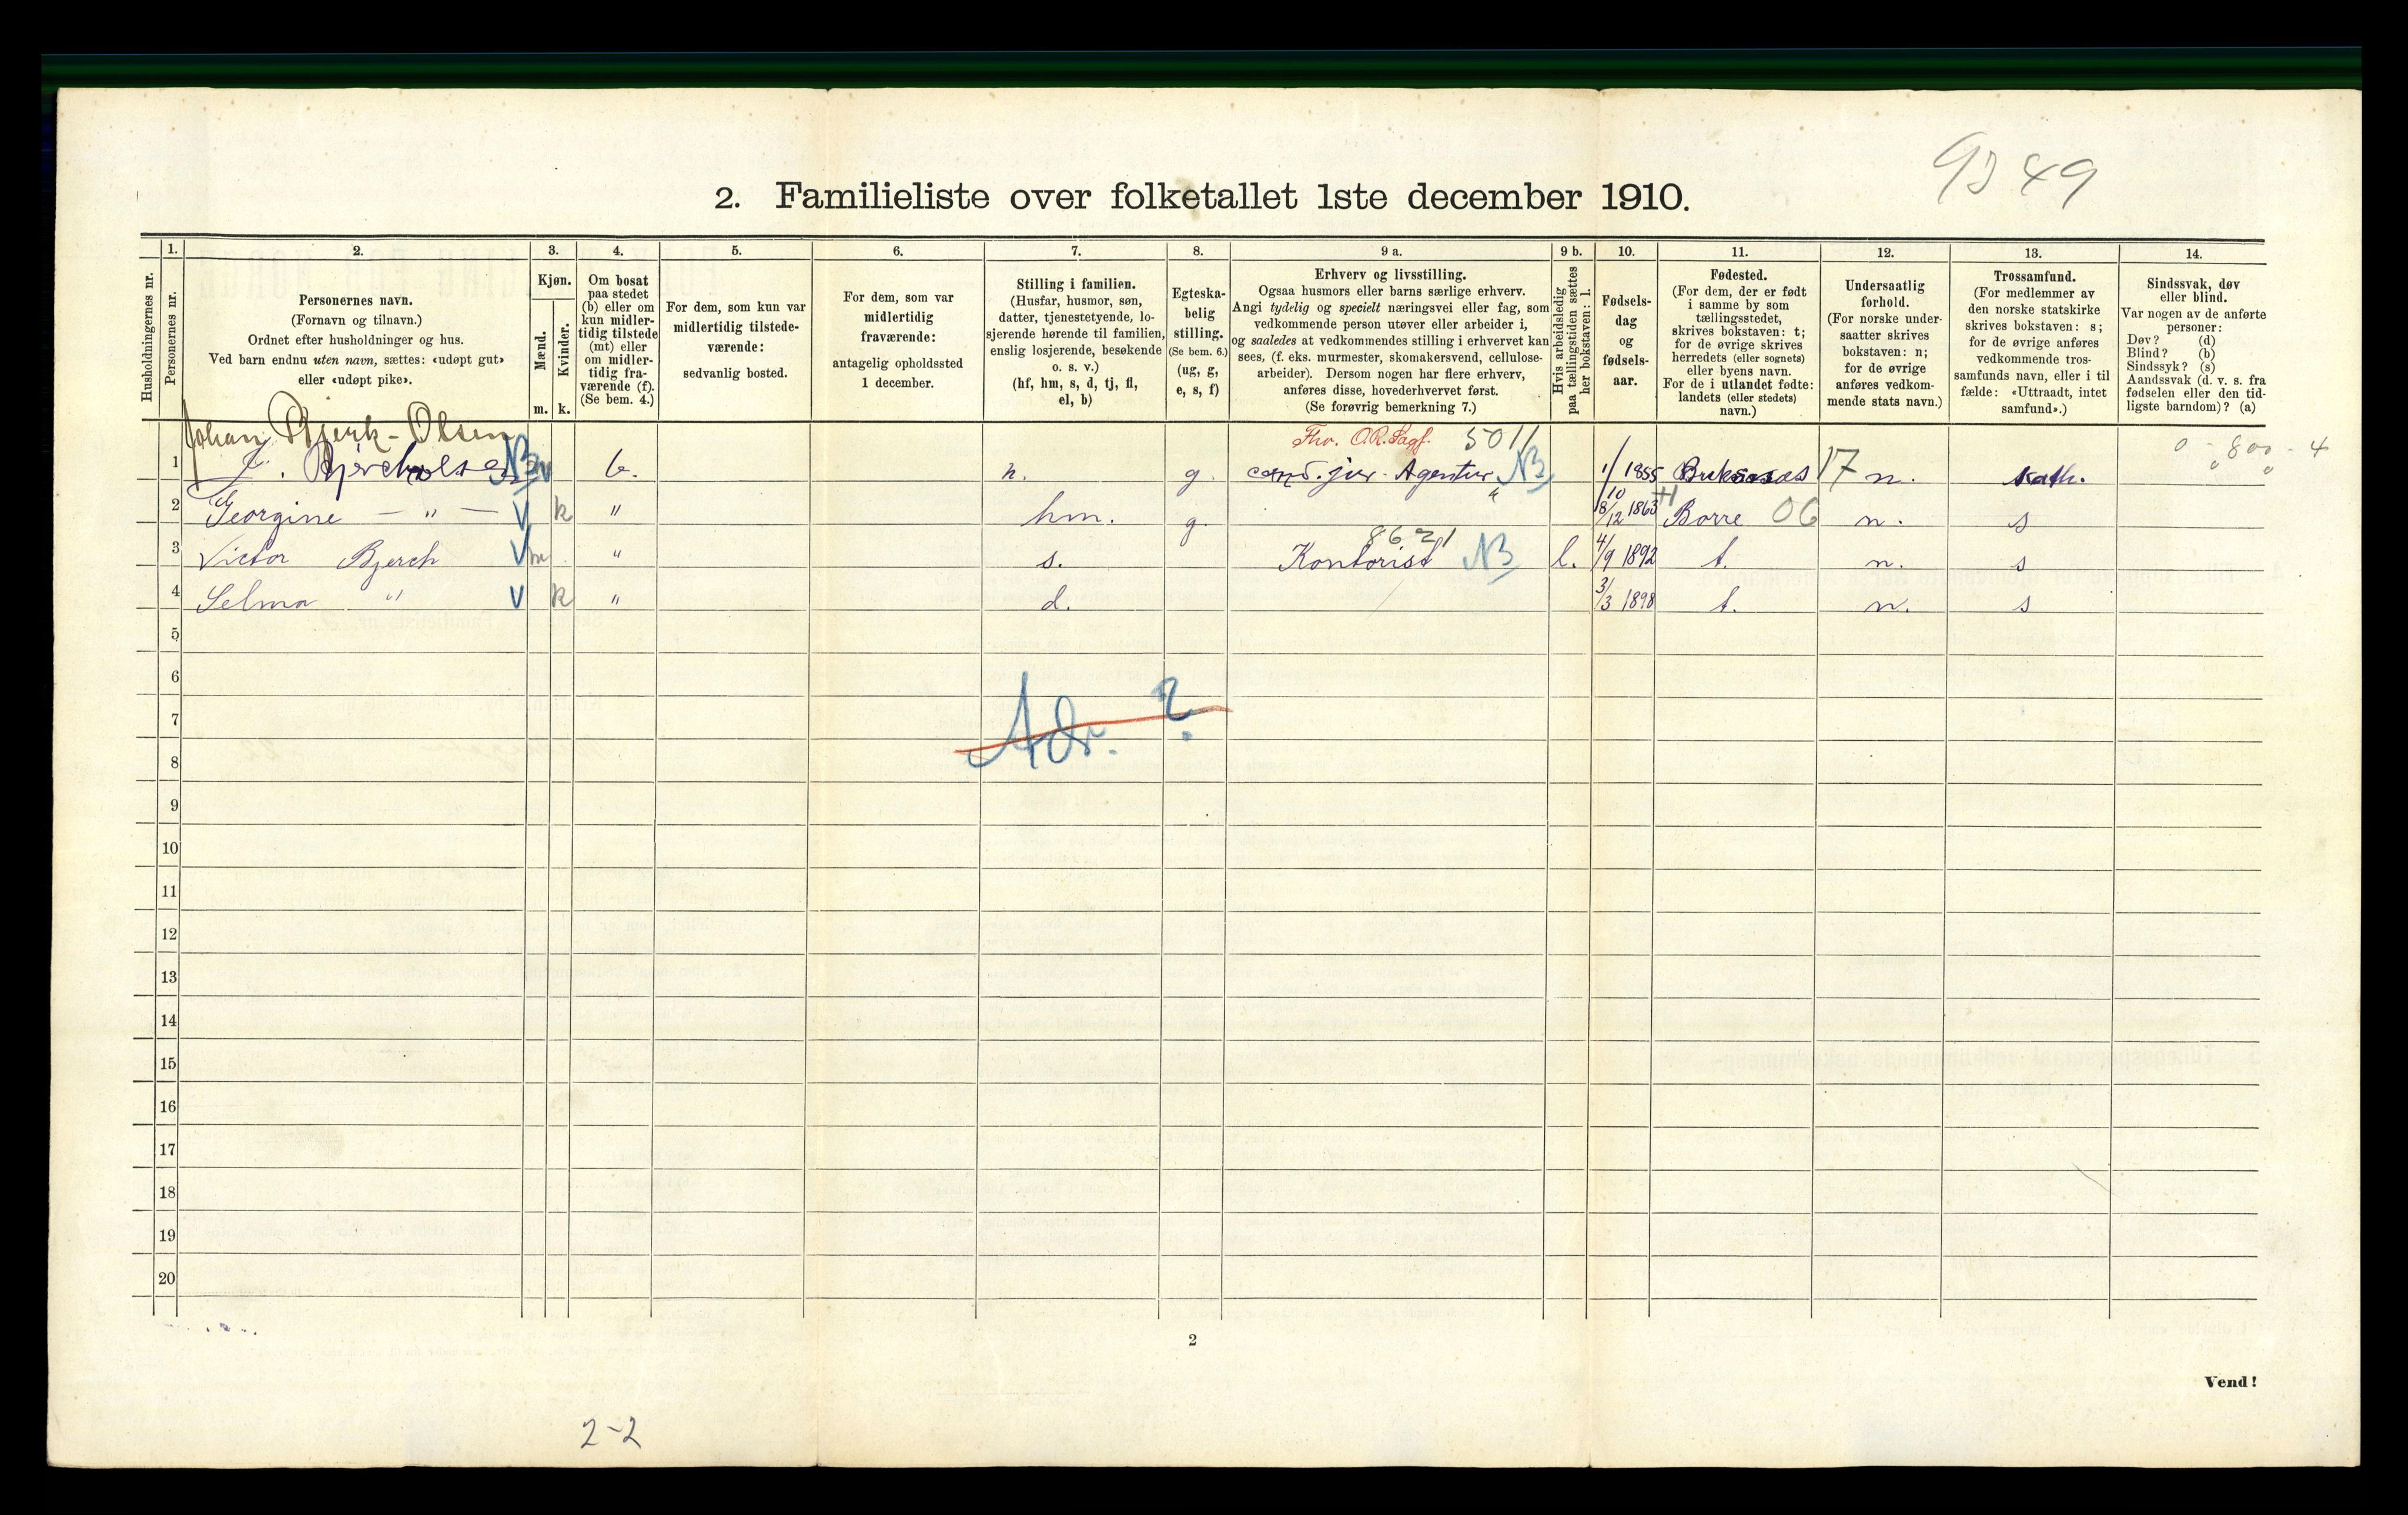 9349
2. Familieliste over folketallet 1ste december 1910.
Husholdningernes nr.
1.
Personernes nr.
2.
Personernes navn.
(Fornavn og tilnavn.)
Ordnet efter husholdninger og hus.
Ved barn endnu uten navn, sættes: «udøpt gut»
eller «udøpt pike».
3.
Kjøn.
Mænd.
Kvinder.
m. k.
4.
Om bosat
paa stedet
(b) eller om
kun midler-
tidig tilstede
(mt) eller
om midler-
tidig fra-
værende (f).
(Se bem. 4.)
5.
For dem, som kun var
midlertidig tilstede-
værende:
sedvanlig bosted.
6.
For dem, som var
midlertidig
fraværende:
antagelig opholdssted
1 december.
7.
Stilling i familien.
(Husfar, husmor, søn,
datter, tjenestetyende, lo-
sjerende hørende til familien,
enslig losjerende, besøkende
o. s. v.)
(hf, hm, s, d, tj, fl,
el, b)
8.
Egteska-
belig
stilling.
(Se bem. 6.)
(ug, g,
e, s, f)
9 a.
Erhverv og livsstilling.
Ogsaa husmors eller barns særlige erhverv.
Angi tydelig og specielt næringsvei eller fag, som
vedkommende person utøver eller arbeider i,
og saaledes at vedkommendes stilling i erhvervet kan
sees, (f. eks. murmester, skomakersvend, cellulose-
arbeider). Dersom nogen har flere erhverv,
anføres disse, hovederhvervet først.
(Se forøvrig bemerkning 7.)
9 b.
Hvis arbeidsledig
paa tællingstiden sættes
her bokstaven: l.
10.
Fødsels-
dag
og
fødsels-
aar.
11.
Fødested.
(For dem, der er født
i samme by som
tællingsstedet,
skrives bokstaven: t;
for de øvrige skrives
herredets (eller sognets)
eller byens navn.
For de i utlandet fødte:
landets (eller stedets)
navn.)
12.
Undersaatlig
forhold.
(For norske under-
saatter skrives
bokstaven: n;
for de øvrige
anføres vedkom-
mende stats navn.)
13.
Trossamfund.
(For medlemmer av
den norske statskirke
skrives bokstaven: s;
for de øvrige anføres
vedkommende tros-
samfunds navn, eller i til
fælde: «Uttraadt, intet
samfund».)
14.
Sindssvak, døv
eller blind.
Var nogen av de anførte
personer:
Døv? (d)
Blind? (b)
Sindssyk? (s)
Aandssvak (d. v. s. fra
fødselen eller den tid-
ligste barndom)? (a)
Johan Bjerk-Olsen 5011 0 - 800 - 4
1 J. NB v b. h. g. cand. jur. Agentur NB 1/10 1855 17 n. kath.
2 Georgine — " — V k " hm. g. 18/12 1863 Borre 06 n. s
8621
3 Victor Bjerch V m " s. Kontorist NB l. 4/9 1892 t. n. s
4 Selma " V k " d. 3/3 1898 t. n. s
5
6
Adr. ?
7
8
9
10
11
12
13
14
15
16
17
18
19
20
2
Vend!
2-2